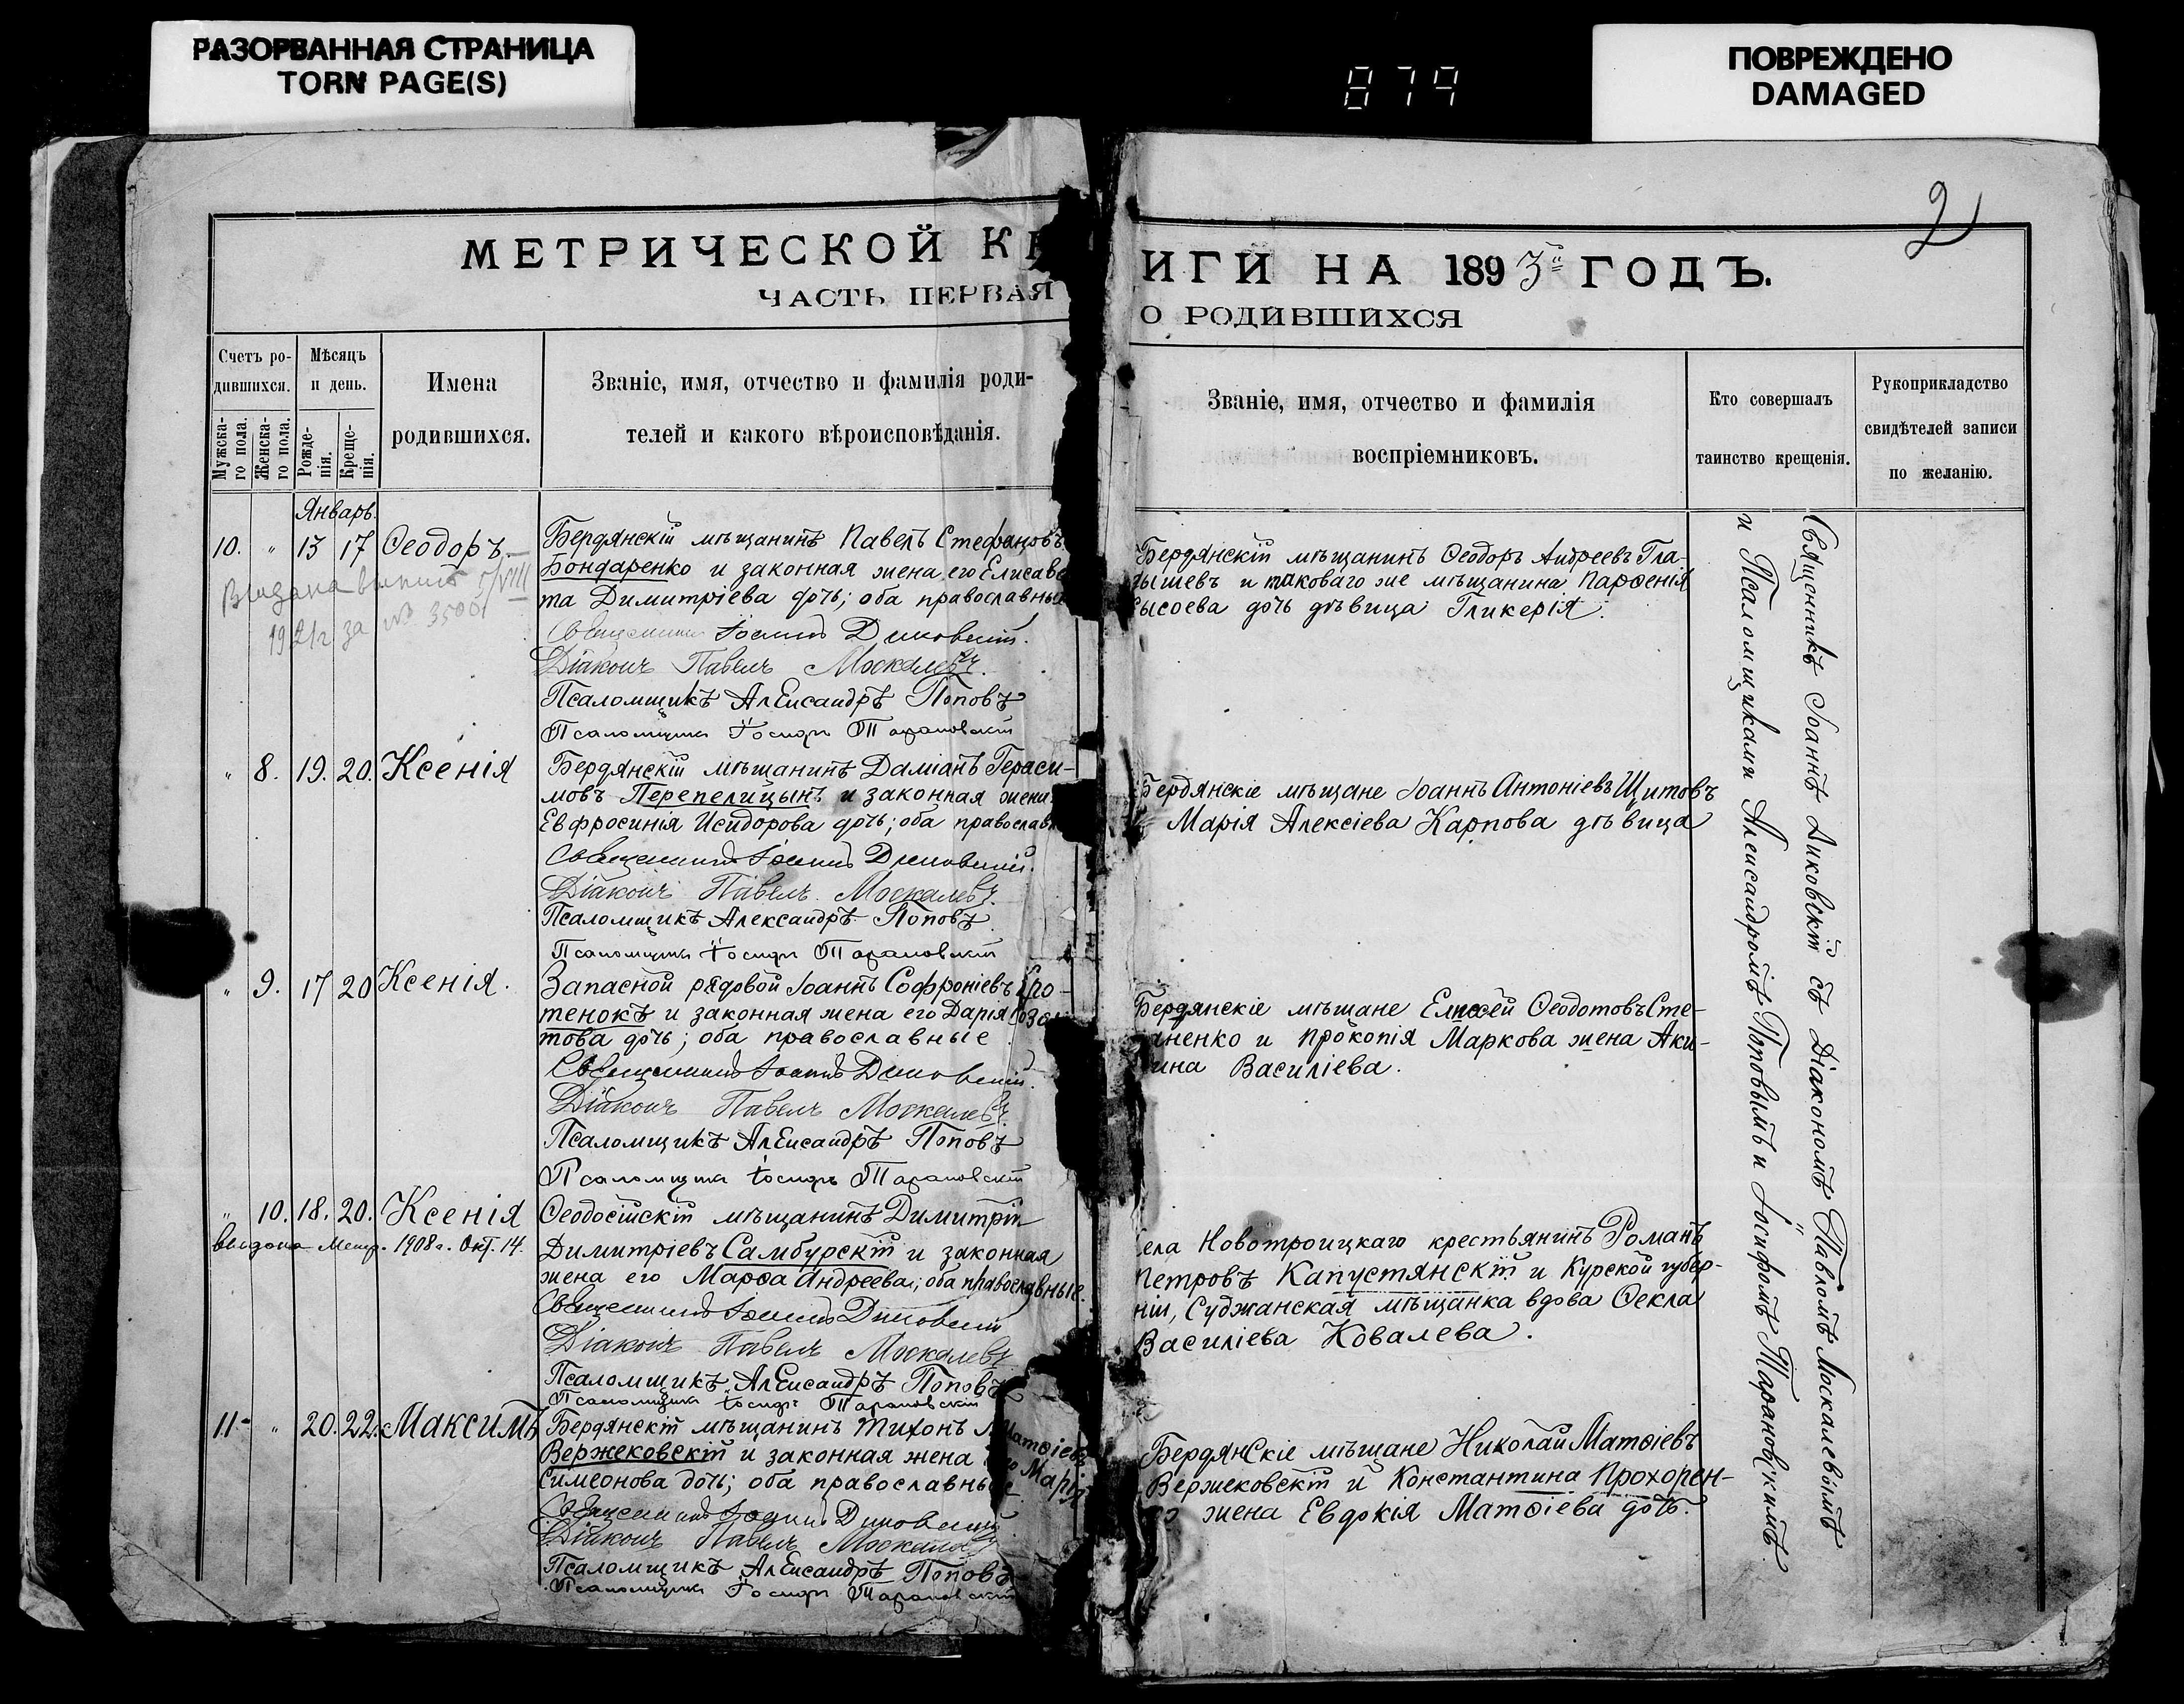 РАЗОРВАННАЯ СТРАНИЦА
TORN PAGE(S)
879
ПОВРЕЖДЕНО
DAMAGED
2
МЕТРИЧЕСКОЙ КН
ЧАСТЬ ПЕРВАЯ
Счетъ ро-
дившихся.
Мужска-
го пола.
Женска-
го пола.
Мѣсяцъ
и день.
Рожде-
нія.
Креще-
нія.
Имена
родившихся.
Званіе, имя, отчество и фамилія роди-
телей и какого вѣроисповѣданія.
Январь.
10. " 13 17 Ѳеодоръ.
Бердянскій мѣщанинъ Павелъ Стефановъ
Бондаренко и законная жена его Елисаве
та Димитріева дочь; оба православные
1921 г за № 3500
Священникъ Іоаннъ
Діаконъ Павелъ Москалевъ.
Псаломщикъ Александръ Поповъ
Псаломщикъ Іосифъ Тарановскій
" 8. 19. 20. Ксенія
Бердянскій мѣщанинъ Даміанъ Гераси-
мовъ Перепелицынъ и законная жена
Евфросинія Исидорова дочь; оба православ
Священникъ Іоаннъ
Діаконъ Павелъ Москалевъ.
Псаломщикъ Александръ Поповъ.
Псаломщикъ Іосифъ Тарановскій
" 9. 17 20 Ксенія.
Запасной рядовой Іоаннъ Софроніевъ Кро-
тенокъ и законная жена его Дарія
това дочь; оба православные.
Священникъ Іоаннъ
Діаконъ Павелъ Москалевъ.
Псаломщикъ Александръ Поповъ
Псаломщикъ Іосифъ Тарановскій
" 10. 18. 20. Ксенія
выдана Метр. 1908 г. Окт. 14.
Ѳеодосійскій мѣщанинъ Димитрій
Димитріевъ Самбурскій и законная
жена его Марѳа Андреева; оба православные.
Священникъ Іоаннъ
Діаконъ Павелъ Москалевъ
Псаломщикъ Александръ Поповъ
Псаломщикъ Іосифъ Тарановскій
11 " 20. 22. Максимъ
Бердянскій мѣщанинъ Тихонъ Матѳіевъ
Вержековскій и законная жена его Марія
Симеонова дочь; оба православные
Священникъ Іоаннъ
Діаконъ Павелъ Москалевъ
Псаломщикъ Александръ Поповъ
Псаломщикъ Іосифъ Тарановскій
ИГИ НА 1893й ГОДЪ.
О РОДИВШИХСЯ
Званіе, имя, отчество и фамилія
воспріемниковъ.
Кто совершалъ
таинство крещенія.
Рукоприкладство
свидѣтелей записи
по желанію.
Бердянскій мѣщанинъ Ѳеодоръ Андреевъ Гла-
дышевъ и таковаго же мѣщанина Парѳенія
Сысоева дочь дѣвица Гликерія.
Бердянскіе мѣщане Іоаннъ Антоніевъ Щитовъ
Марія Алексіева Карпова дѣвица
Бердянскіе мѣщане Елисей Ѳеодотовъ Сте-
аненко и Прокопія Маркова жена Аки-
лина Василіева.
села Новотроицкаго крестьянинъ Романъ
Петровъ Капустянскій и Курской губер-
ніи, Суджанская мѣщанка вдова Ѳекла
Василіева Ковалева.
Бердянскіе мѣщане Николай Матѳіевъ
Вержековскій и Константина Прохорен-
ко жена Евдокія Матѳіева дочь.
Священникъ Іоаннъ съ Діакономъ Павломъ Москалевымъ
и Псаломщиками Александромъ Поповымъ и Іосифомъ Тарановскимъ.